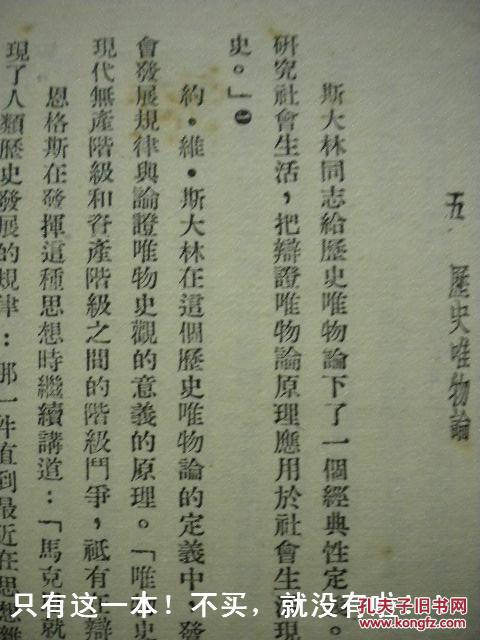 五 歷史唯物論
斯大林同志給歷史唯物論下了一個經典性定
研究社會生活，把辯證唯物論原理應用於社會生活現
史。」
約·維·斯大林在這個歷史唯物論的定義中，發
會發展規律與論證唯物史觀的意義的原理。「唯
現代無產階級和資產階級之間的階級鬥爭，祇有
恩格斯在發揮這種思想時繼續講道：「馬克
現了人類歷史發展的規律：那一件直到最近在思想
只有这一本！不买，就没有啦！
孔夫子旧书网